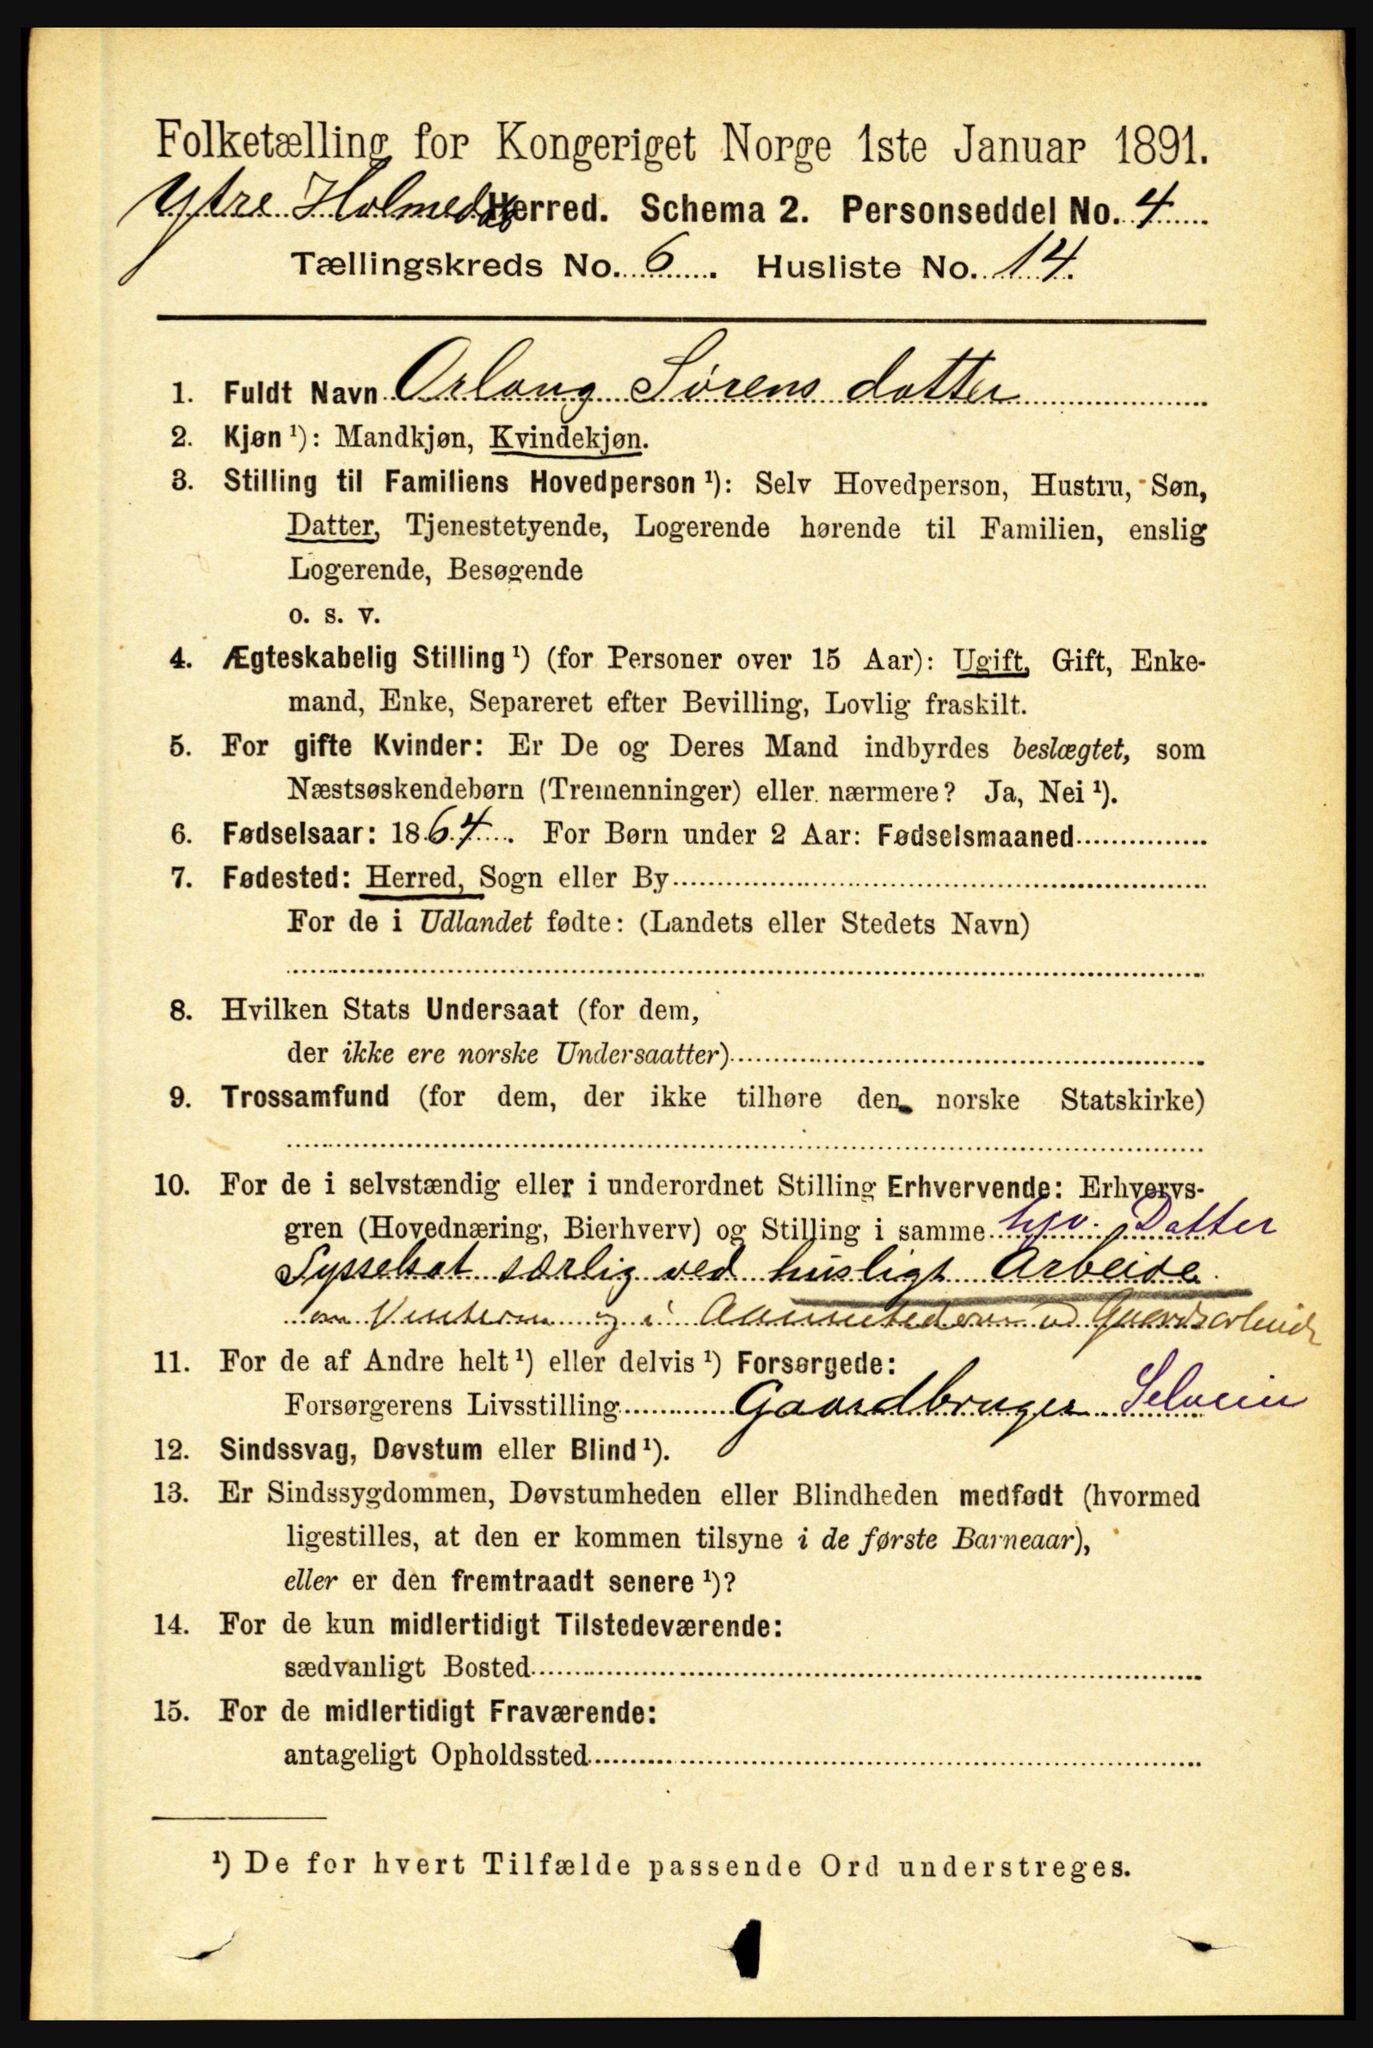 Folketælling for Kongeriget Norge 1ste Januar 1891.
Ytre Holmedal Herred. Schema 2. Personseddel No. 4
Tællingskreds No. 6. Husliste No. 14.
1. Fuldt Navn Orlaug Sørens datter
2. Kjøn ¹): Mandkjøn, Kvindekjøn.
3. Stilling til Familiens Hovedperson ¹): Selv Hovedperson, Hustru, Søn,
Datter, Tjenestetyende, Logerende hørende til Familien, enslig
Logerende, Besøgende
o. s. v.
4. Ægteskabelig Stilling ¹) (for Personer over 15 Aar): Ugift, Gift, Enke-
mand, Enke, Separeret efter Bevilling, Lovlig fraskilt.
5. For gifte Kvinder: Er De og Deres Mand indbyrdes beslægtet, som
Næstsøskendebørn (Tremenninger) eller nærmere? Ja, Nei ¹).
6. Fødselsaar: 1864. For Børn under 2 Aar: Fødselsmaaned
7. Fødested: Herred, Sogn eller By
For de i Udlandet fødte: (Landets eller Stedets Navn)
8. Hvilken Stats Undersaat (for dem,
der ikke ere norske Undersaatter)
9. Trossamfund (for dem, der ikke tilhøre den norske Statskirke)
10. For de i selvstændig eller i underordnet Stilling Erhvervende: Erhvervs-
gren (Hovednæring, Bierhverv) og Stilling i samme hjv. Datter
Sysselsat særlig ved husligt Arbeide
om Vinteren og i Aannetiderne ved Gaardsarbeide
11. For de af Andre helt ¹) eller delvis ¹) Forsørgede:
Forsørgerens Livsstilling Gaardbruger Selveier
12. Sindssvag, Døvstum eller Blind ¹).
13. Er Sindssygdommen, Døvstumheden eller Blindheden medfødt (hvormed
ligestilles, at den er kommen tilsyne i de første Barneaar),
eller er den fremtraadt senere ¹)?
14. For de kun midlertidigt Tilstedeværende:
sædvanligt Bosted
15. For de midlertidigt Fraværende:
antageligt Opholdssted
¹) De for hvert Tilfælde passende Ord understreges.